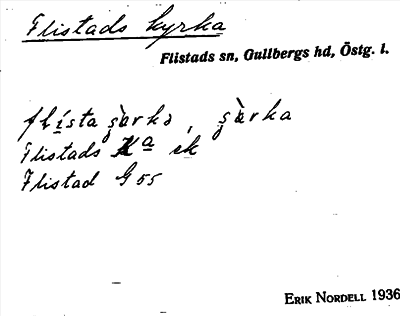 Flistads kyrka
Flistads sn, Gullbergs hd, Östg. l.
flista şàrkə, şàrka
Flistads Ka ek
Flistad G 55
ERIK NORDELL 1936